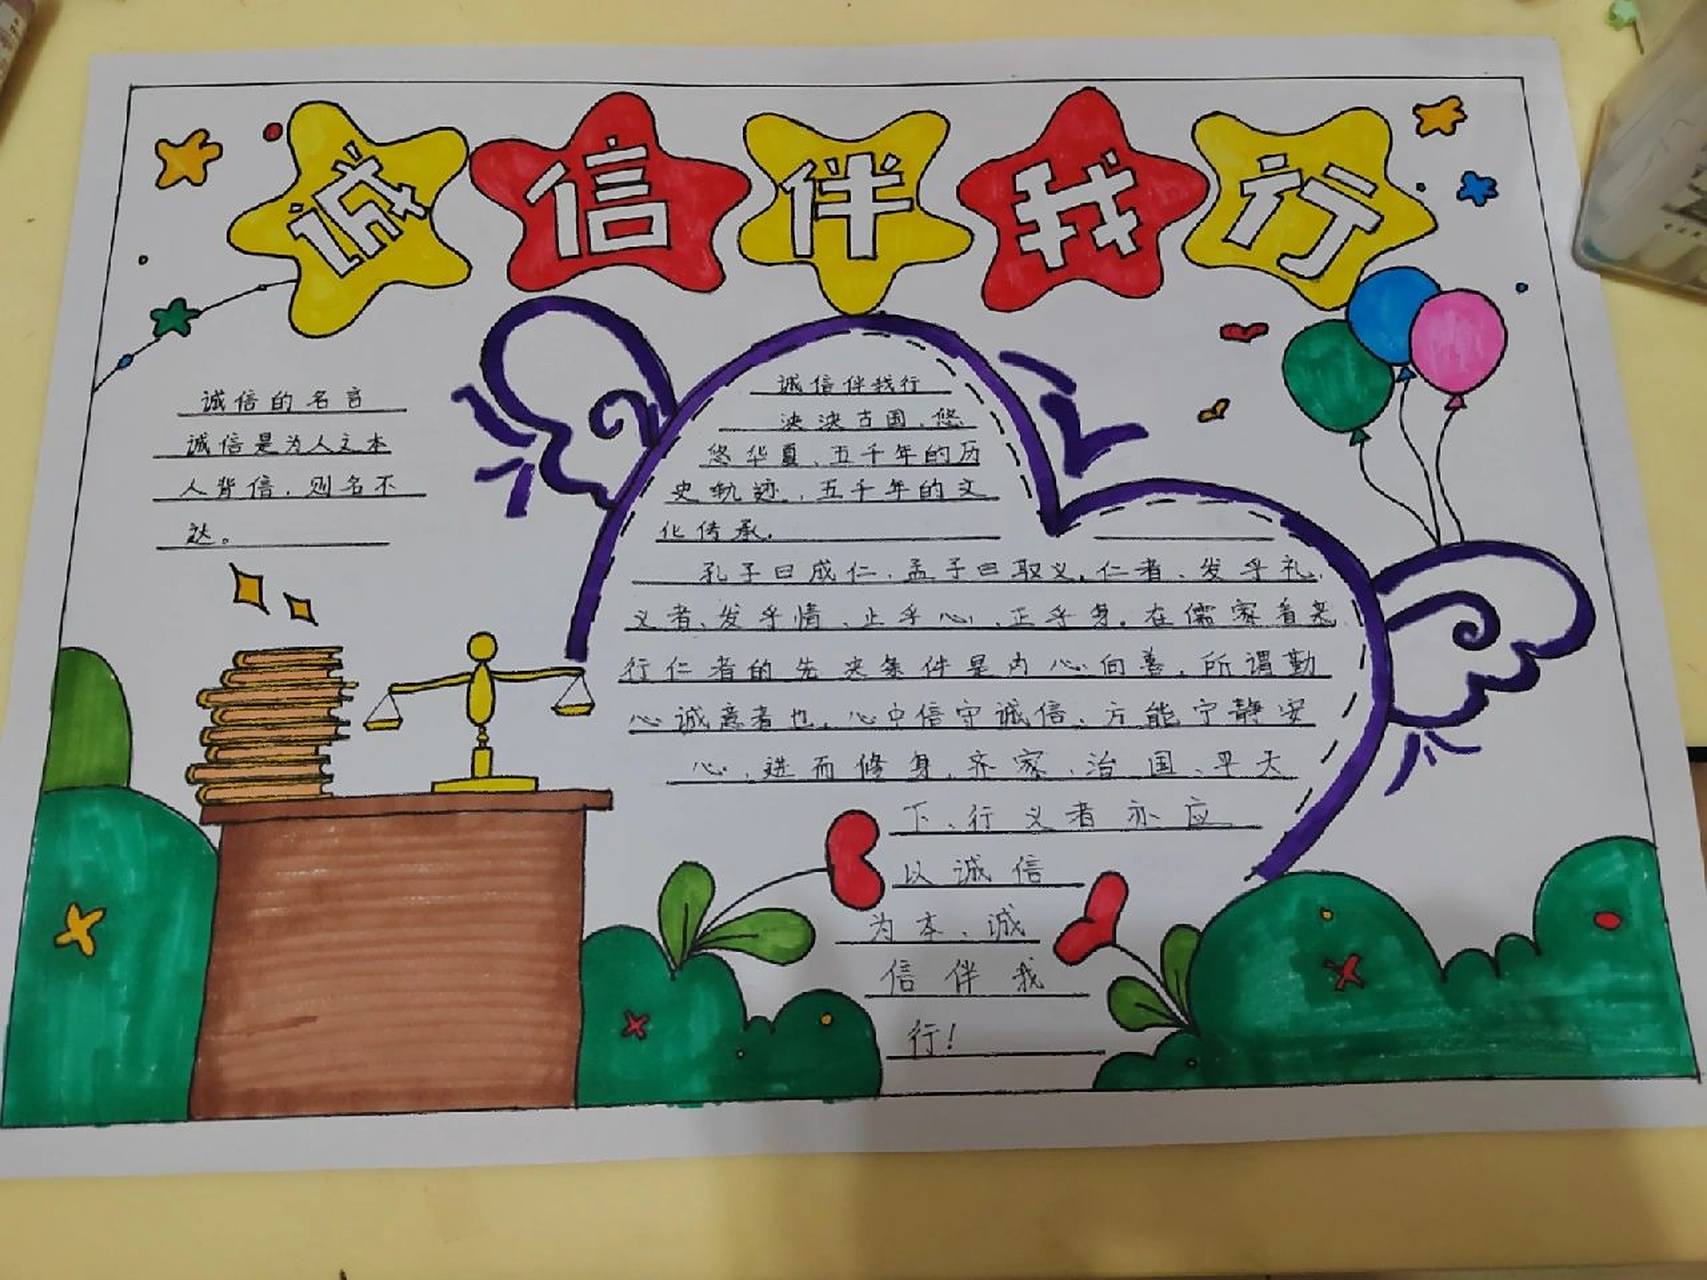 诚信伴我行
诚信的名言
诚信是为人之本
人背信，则名不
达。
诚信伴我行
泱泱古国、悠
悠华夏、五千年的历
史轨迹、五千年的文
化传承。
孔子曰成仁、孟子曰取义。仁者、发乎礼
义者、发乎情、止乎心、正乎身。在儒家看来
行仁者的先决条件是内心向善。所谓勤
心诚意者也。心中信守诚信、方能宁静安
心、进而修身、齐家、治国、平天
下、行义者亦应
以诚信
为本、诚
信伴我
行！